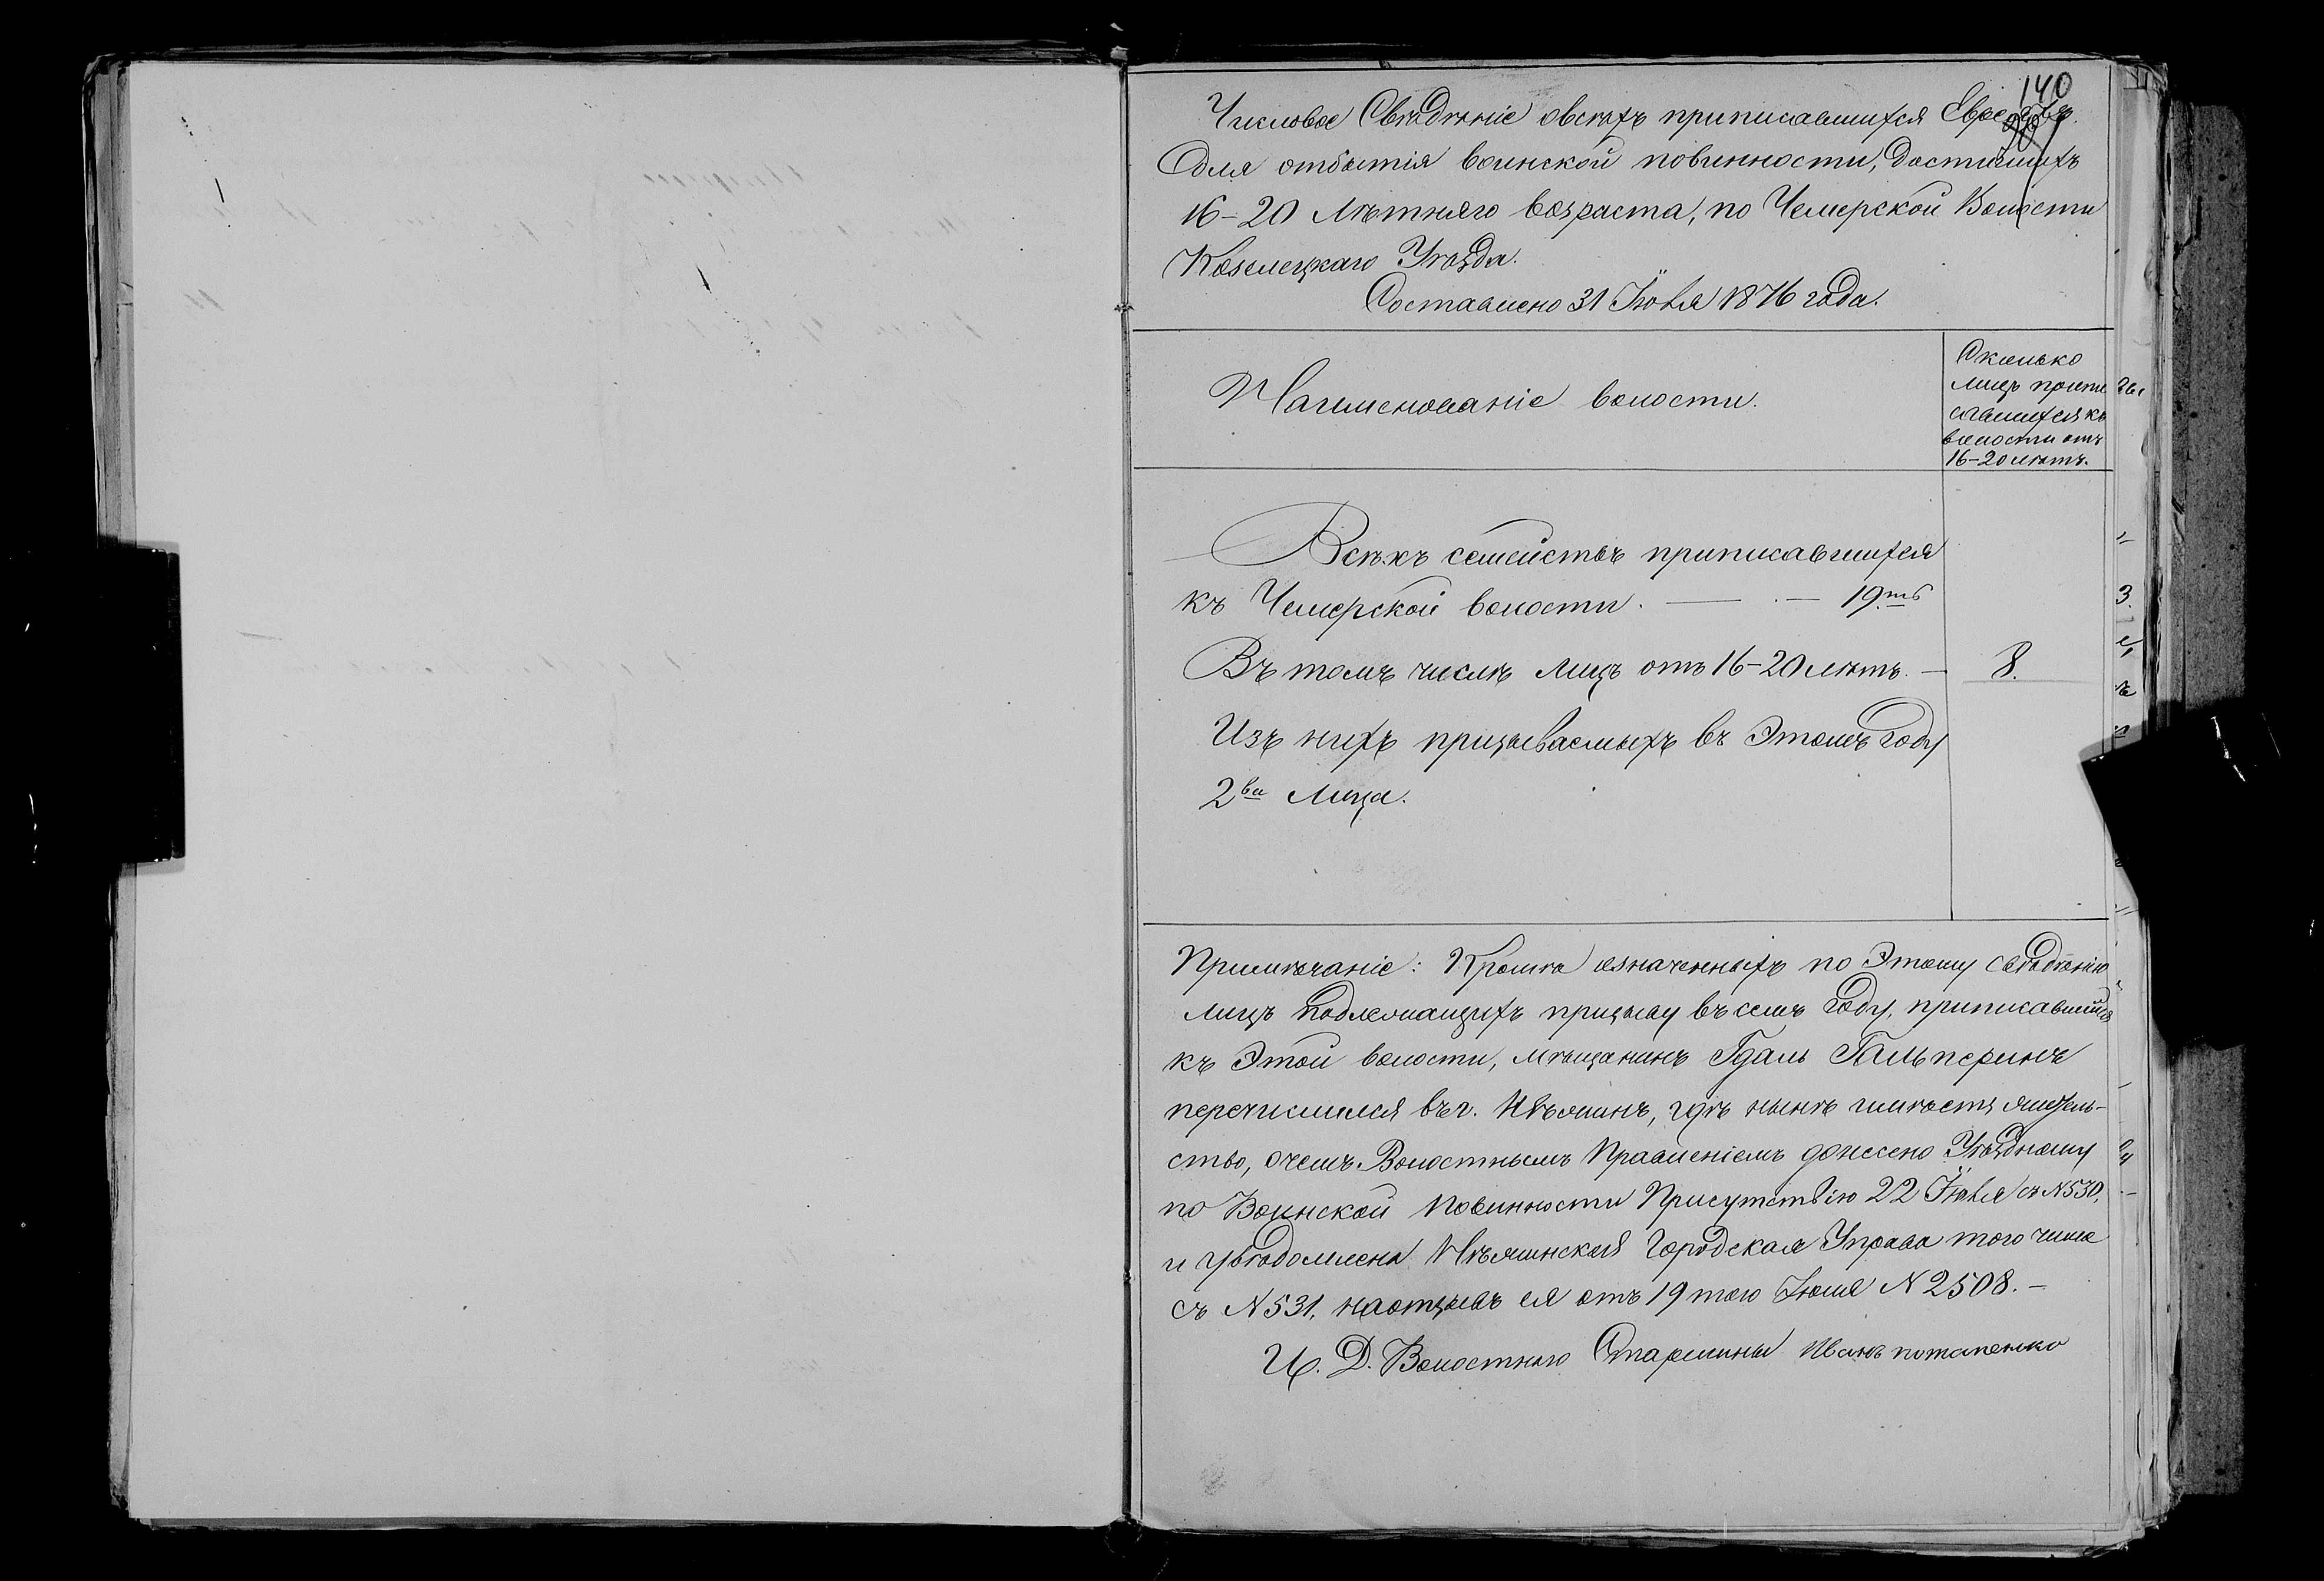 140
Числовое Свѣдѣніе овсѣхъ приписавшихся Евреевъ
для отбытія воинской повинности, достигшихъ
16-20 Лѣтняго возраста, по Чемерской Волости
Козелецкаго Уѣзда.
Составлено 31 Іюля 1876 года.
Наименованіе волости.
Сколько
лицъ припи
савшихся къ
волости отъ
16-20 лѣтъ.
Всѣхъ семействъ приписавшихся
къ Чемерской волости. — . — 19.ть
Въ томъ числѣ Лицъ отъ 16-20 лѣтъ. — 8.
Изъ нихъ призываемыхъ въ Этомъ году
2ва Лица.
Примѣчаніе: Кромѣ означенныхъ по Этому свѣдѣнію
лицъ подлежащихъ призыву въ семъ году, приписавшійся
къ Этой волости, мѣщанинъ Гдаль Гальперинъ
перечислился въ г. Нѣжинъ, гдѣ нынѣ имѣетъ жител-
ство, очемъ Волостнымъ Правленіемъ донесено Уѣздному
по Воинской повинности Присутствію 22 Іюля съ N 530,
и увѣдомлена Нѣжинская Городская Управа того числа
съ N 531, наотзывъ ея отъ 19 того Іюля N 2508. —
И. Д. Волостного Старшины Иванъ потапенко